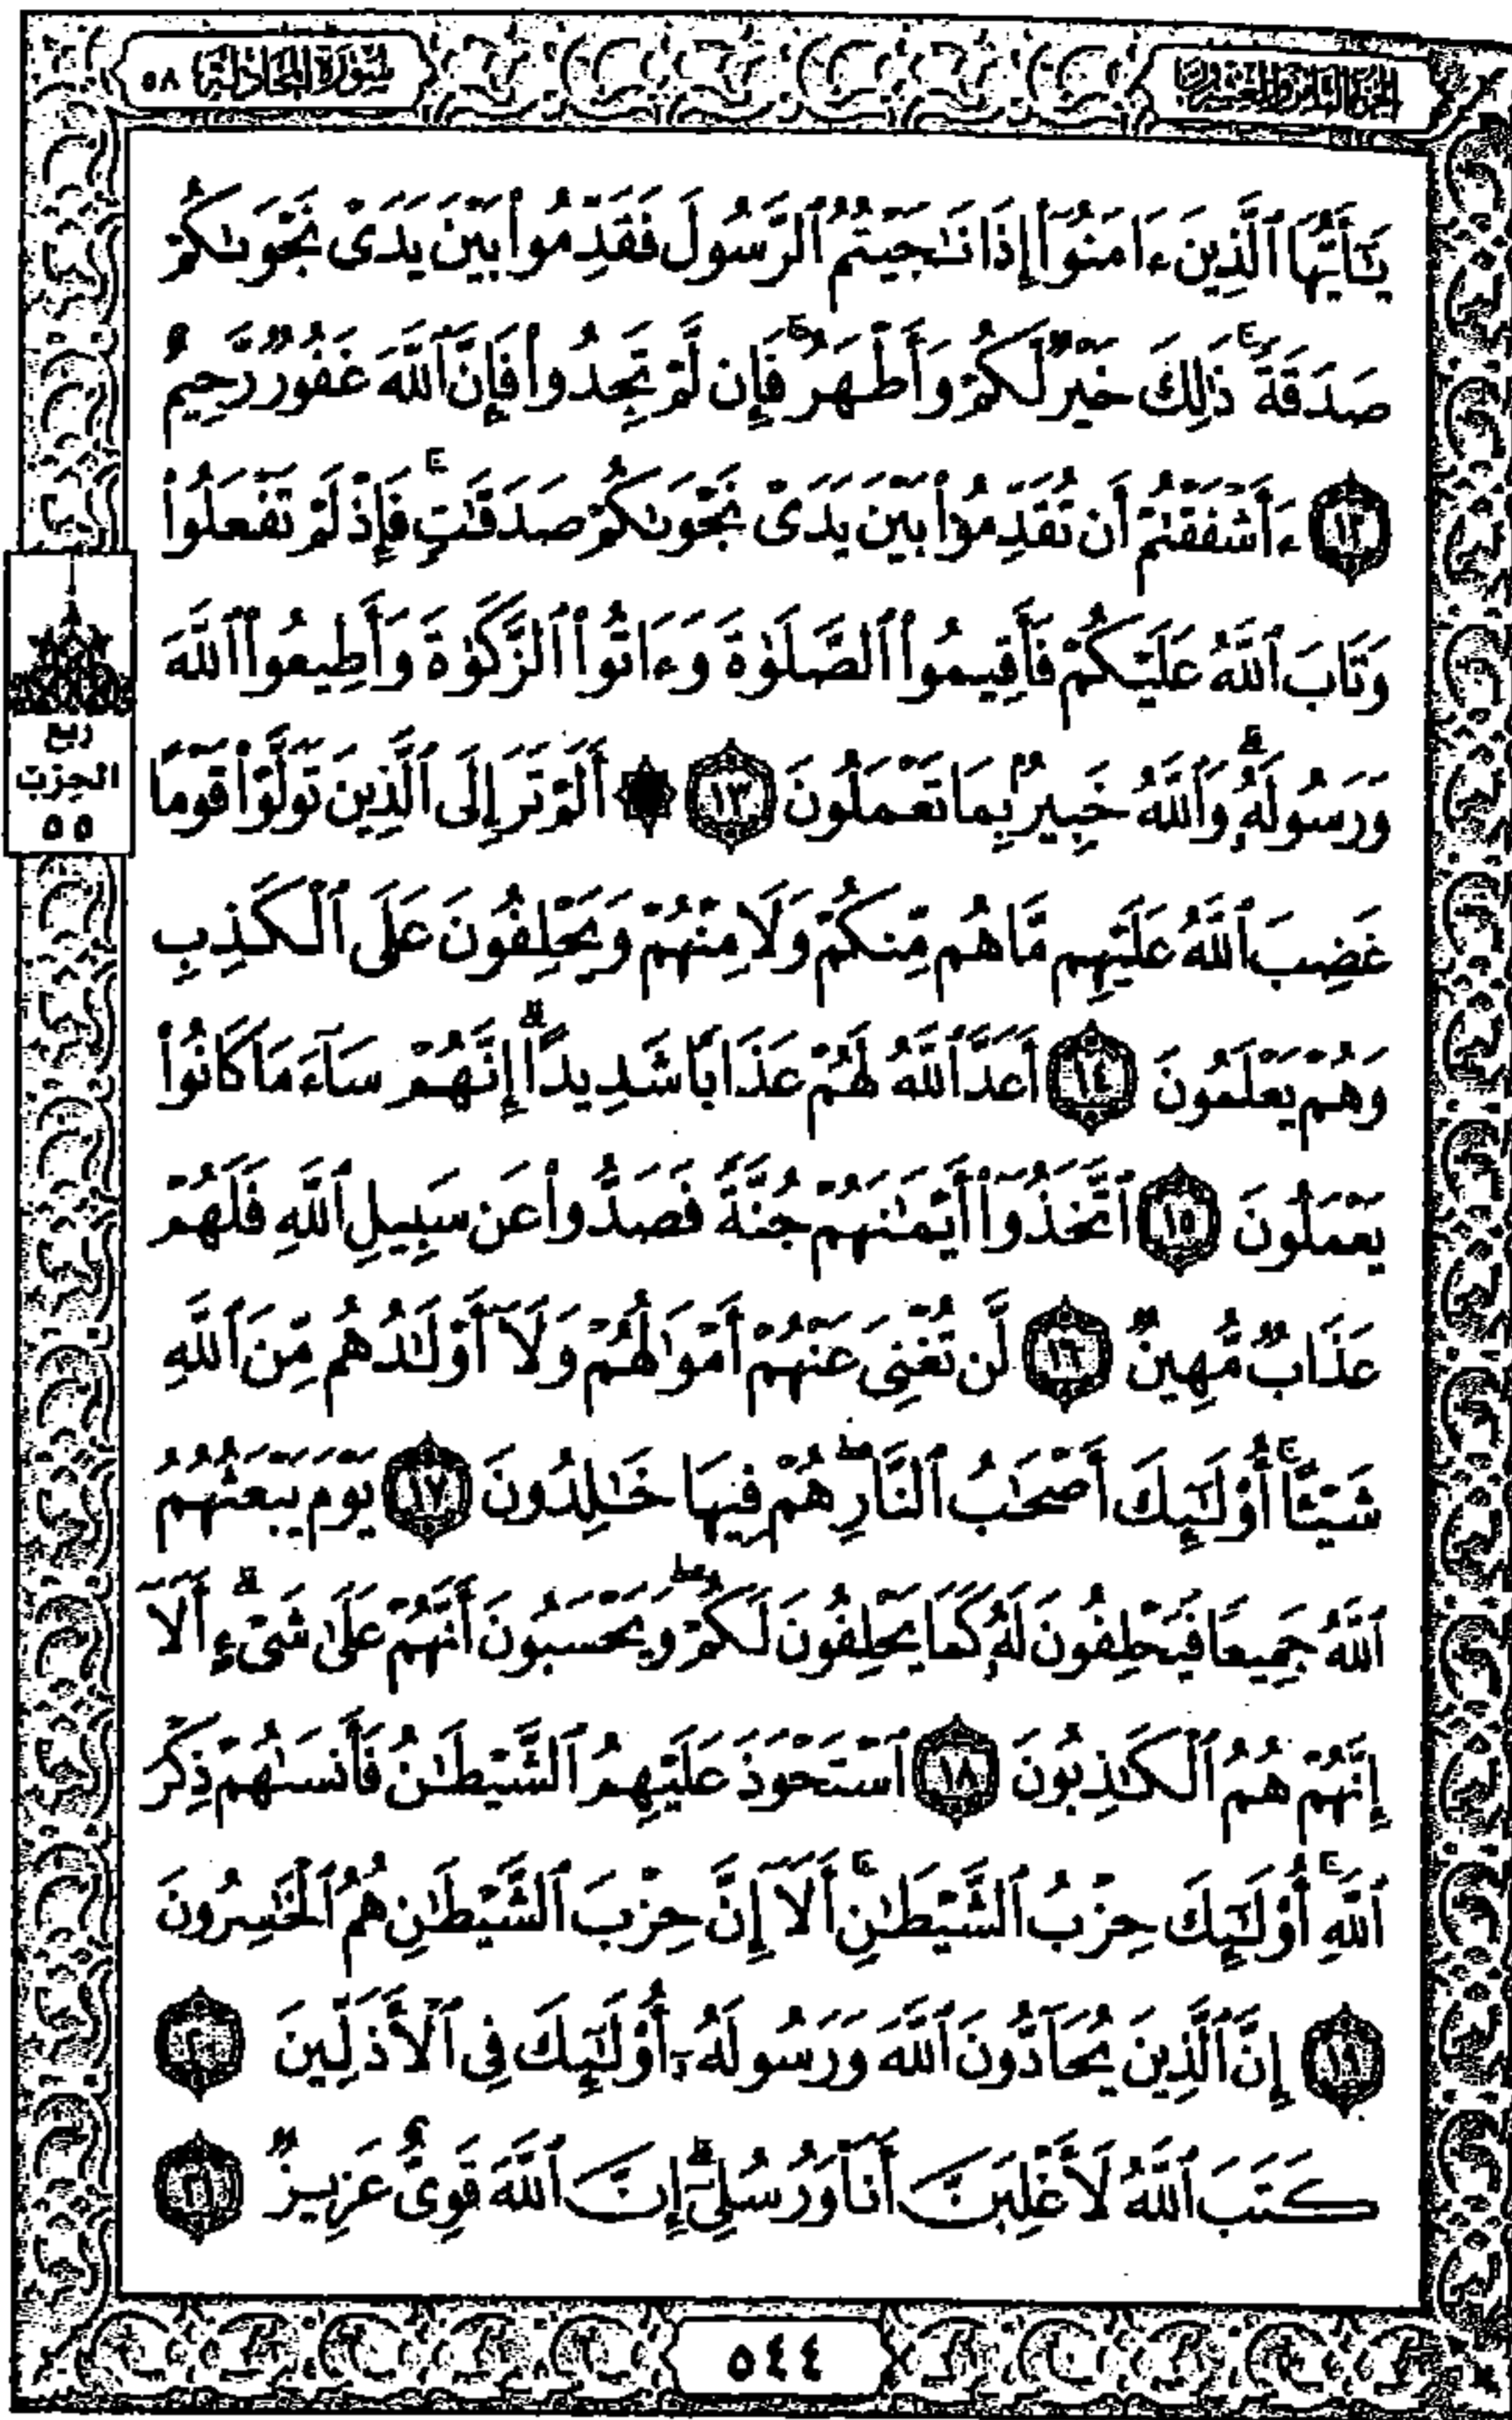 الجزء الثامن والعشرون
سورة المجادلة ٥٨
يَٰٓأَيُّهَا ٱلَّذِينَ ءَامَنُوٓا۟ إِذَا نَٰجَيْتُمُ ٱلرَّسُولَ فَقَدِّمُوا۟ بَيْنَ يَدَىْ نَجْوَىٰكُمْ
صَدَقَةً ۚ ذَٰلِكَ خَيْرٌ لَّكُمْ وَأَطْهَرُ ۚ فَإِن لَّمْ تَجِدُوا۟ فَإِنَّ ٱللَّهَ غَفُورٌ رَّحِيمٌ
١٢ ءَأَشْفَقْتُمْ أَن تُقَدِّمُوا۟ بَيْنَ يَدَىْ نَجْوَىٰكُمْ صَدَقَٰتٍ ۚ فَإِذْ لَمْ تَفْعَلُوا۟
وَتَابَ ٱللَّهُ عَلَيْكُمْ فَأَقِيمُوا۟ ٱلصَّلَوٰةَ وَءَاتُوا۟ ٱلزَّكَوٰةَ وَأَطِيعُوا۟ ٱللَّهَ
وَرَسُولَهُۥ ۚ وَٱللَّهُ خَبِيرٌۢ بِمَا تَعْمَلُونَ ١٣ ۞ أَلَمْ تَرَ إِلَى ٱلَّذِينَ تَوَلَّوْا۟ قَوْمًا
غَضِبَ ٱللَّهُ عَلَيْهِم مَّا هُم مِّنكُمْ وَلَا مِنْهُمْ وَيَحْلِفُونَ عَلَى ٱلْكَذِبِ
وَهُمْ يَعْلَمُونَ ١٤ أَعَدَّ ٱللَّهُ لَهُمْ عَذَابًا شَدِيدًا ۖ إِنَّهُمْ سَآءَ مَا كَانُوا۟
يَعْمَلُونَ ١٥ ٱتَّخَذُوٓا۟ أَيْمَٰنَهُمْ جُنَّةً فَصَدُّوا۟ عَن سَبِيلِ ٱللَّهِ فَلَهُمْ
عَذَابٌ مُّهِينٌ ١٦ لَّن تُغْنِىَ عَنْهُمْ أَمْوَٰلُهُمْ وَلَآ أَوْلَٰدُهُم مِّنَ ٱللَّهِ
شَيْـًٔا ۚ أُو۟لَٰٓئِكَ أَصْحَٰبُ ٱلنَّارِ ۖ هُمْ فِيهَا خَٰلِدُونَ ١٧ يَوْمَ يَبْعَثُهُمُ
ٱللَّهُ جَمِيعًا فَيَحْلِفُونَ لَهُۥ كَمَا يَحْلِفُونَ لَكُمْ ۖ وَيَحْسَبُونَ أَنَّهُمْ عَلَىٰ شَىْءٍ ۚ أَلَآ
إِنَّهُمْ هُمُ ٱلْكَٰذِبُونَ ١٨ ٱسْتَحْوَذَ عَلَيْهِمُ ٱلشَّيْطَٰنُ فَأَنسَىٰهُمْ ذِكْرَ
ٱللَّهِ ۚ أُو۟لَٰٓئِكَ حِزْبُ ٱلشَّيْطَٰنِ ۚ أَلَآ إِنَّ حِزْبَ ٱلشَّيْطَٰنِ هُمُ ٱلْخَٰسِرُونَ
١٩ إِنَّ ٱلَّذِينَ يُحَآدُّونَ ٱللَّهَ وَرَسُولَهُۥٓ أُو۟لَٰٓئِكَ فِى ٱلْأَذَلِّينَ ٢٠
كَتَبَ ٱللَّهُ لَأَغْلِبَنَّ أَنَا۠ وَرُسُلِىٓ ۚ إِنَّ ٱللَّهَ قَوِىٌّ عَزِيزٌ ٢١
ربع
الحزب
٥٥
٥٤٤